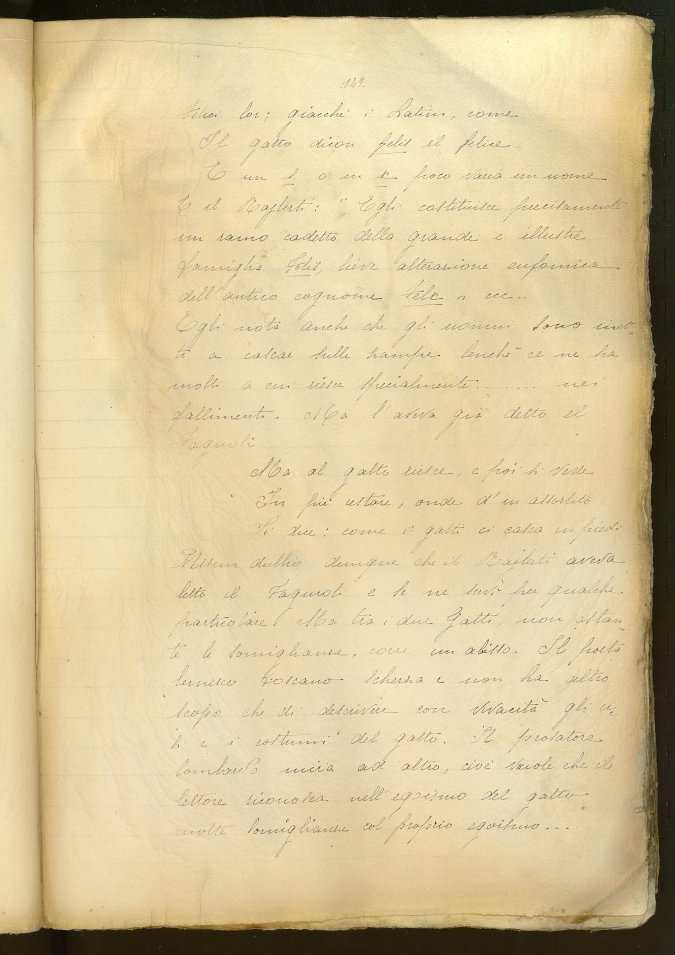 149
lor; giacchè i Latini, come
Il gatto dicon felis il felice.
E un s o un x poco varia un nome
E il Rajberti: " Egli costituisce precisamente
un ramo cadetto della grande e illustre
famiglia Felis, lieve alterazione eufonica
dell'antico cognome Felix " ecc..
Egli nota anche che gli uomini sono inet-
ti a cascar sulle zampe benchè ce ne ha
molti a cui riesce specialmente ....... nei
fallimenti. Ma l'aveva già detto il
Fagiuoli
Ma al gatto riesce, e poi si vede
In piè restare, onde d'un assortito
Si dice: come i gatti ei casca in piedi
Nessun dubbio dunque che il Rajberti aveva
letto il Fagiuoli e se ne servì per qualche
particolare. Ma tra i due Gatti, non ostan-
te le somiglianze, corre un abisso. Il poeta
bernesco toscano scherza e non ha altro
scopo che di descrivere con vivacità gli u-
si e i costumi del gatto. Il prosatore
lombardo mira ad altro, cioè vuole che il
lettore riconosca nell'egoismo del gatto
molte somiglianze col proprio egoismo...